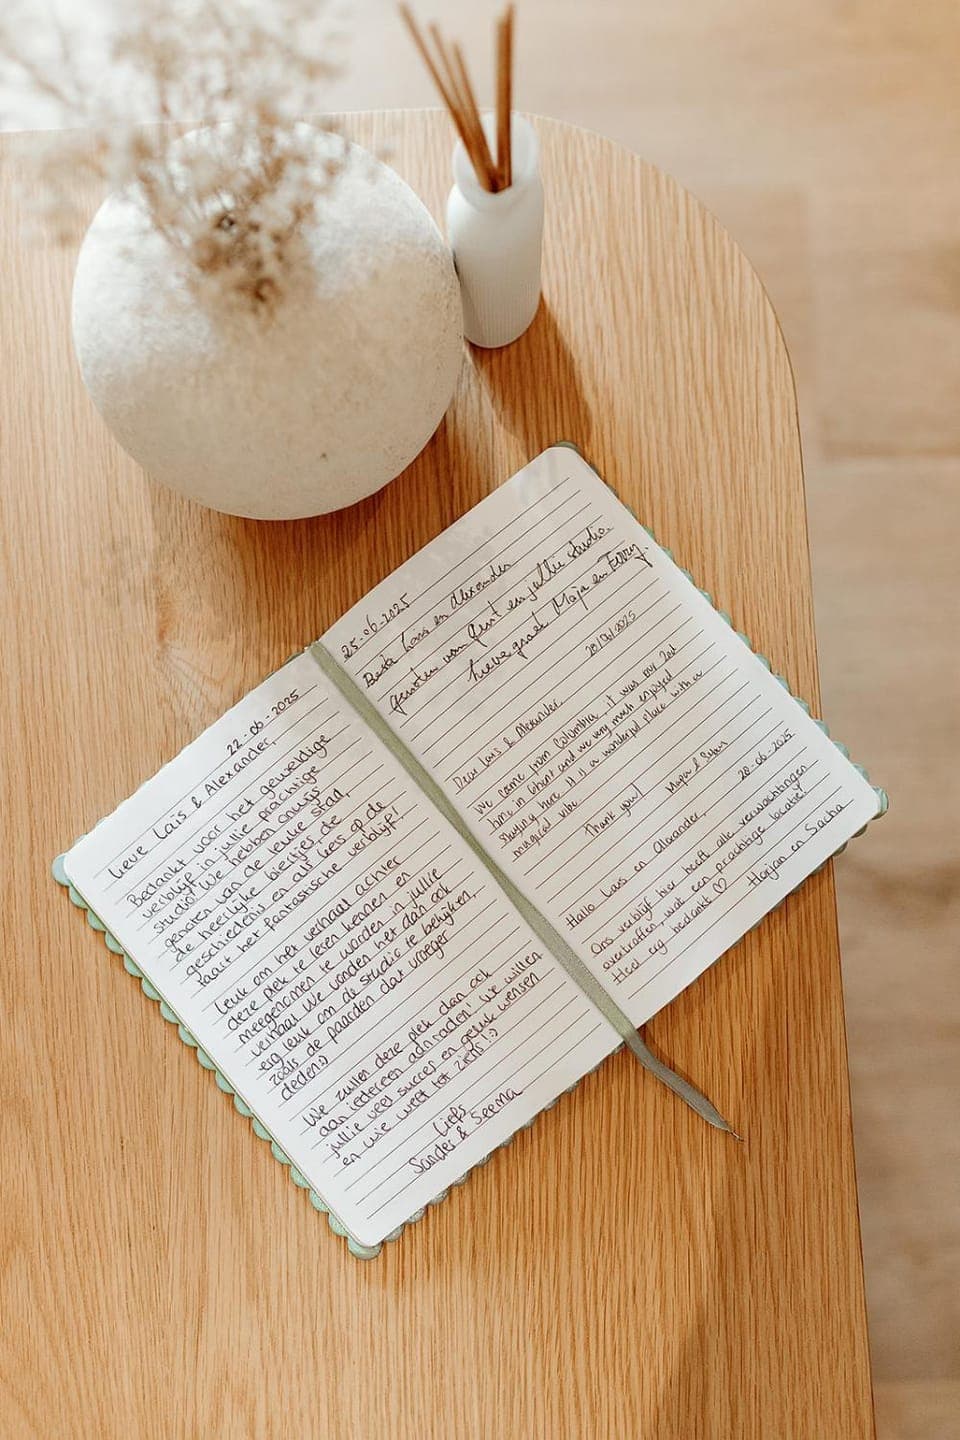 22-06-2025
Lieve Laïs & Alexander,
Bedankt voor het geweldige
verblijf in jullie prachtige
studio! We hebben onwijs
genoten van de leuke stad,
de heerlijke biertjes, de
geschiedenis en als kers op de
taart het fantastische verblijf!
Leuk om het verhaal achter
deze plek te leren kennen en
meegenomen te worden in jullie
verhaal. We vonden het dan ook
erg leuk om de studio te bekijken,
zoals de paarden dat vroeger
deden:)
We zullen deze plek dan ook
aan iedereen aanraden! We willen
jullie veel succes en geluk wensen
en wie weet tot ziens! :)
Liefs
Sander & Seema
25-06-2025
Beste Laïs en Alexander
genoten van Gent en jullie studio.
Lieve groet Maja en Ferry.
28/06/2025
Dear Laïs & Alexander,
We came from Colombia, it was our 1st
time in Ghent and we very much enjoyed
staying here. It is a wonderful place with a
magical vibe.
Thank you!
&
28-06-2025
Hallo Laïs en Alexander,
Ons verblijf hier heeft alle verwachtingen
overtroffen, wat een prachtige locatie!
Heel erg bedankt ♡
Marjan en Sacha